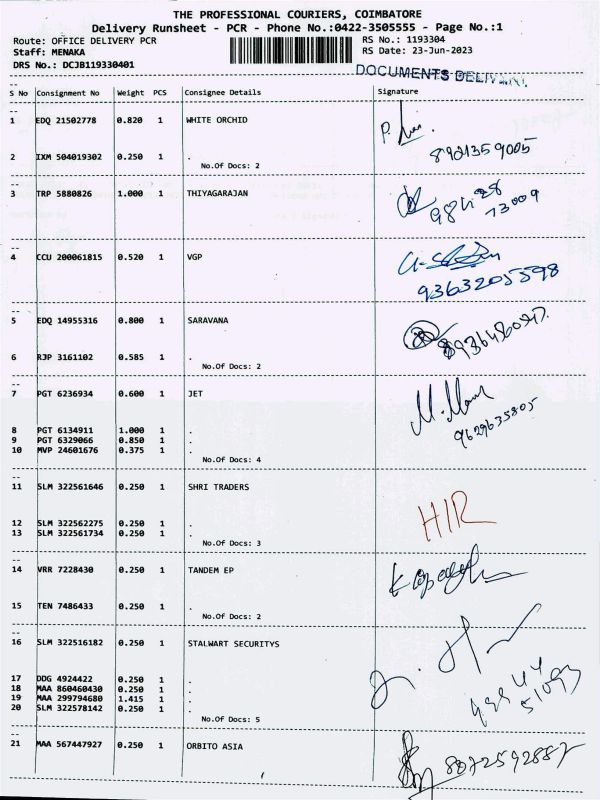 THE PROFESSIONAL COURIERS, COIMBATORE
Delivery Runsheet - PCR - Phone No.:0422-3505555 - Page No.:1
Route: OFFICE DELIVERY PCR
RS No.: 1193304
Staff: MENAKA
RS Date: 23-Jun-2023
DRS No.: DCJB119330401
DOCUMENTS
S No Consignment No Weight PCS Consignee Details Signature
1 EDQ 21502778 0.820 1 WHITE ORCHID
2 IXM 504019302 0.250 1 .
No.Of Docs: 2
3 TRP 5880826 1.000 1 THIYAGARAJAN
4 CCU 200061815 0.520 1 VGP
9363205598
5 EDQ 14955316 0.800 1 SARAVANA
6 RJP 3161102 0.585 1 .
No.Of Docs: 2
7 PGT 6236934 0.600 1 JET
8 PGT 6134911 1.000 1 .
9 PGT 6329066 0.850 1 .
10 MVP 24601676 0.375 1 .
No.Of Docs: 4
9629635805
11 SLM 322561646 0.250 1 SHRI TRADERS
12 SLM 322562275 0.250 1 .
13 SLM 322561734 0.250 1 .
No.Of Docs: 3
14 VRR 7228430 0.250 1 TANDEM EP
15 TEN 7486433 0.250 1 .
No.Of Docs: 2
16 SLM 322516182 0.250 1 STALWART SECURITYS
17 DDG 4924422 0.250 1 .
18 MAA 860460430 0.250 1 .
19 MAA 299794680 1.415 1 .
20 SLM 322578142 0.250 1 .
No.Of Docs: 5
21 MAA 567447927 0.250 1 ORBITO ASIA
8072592887